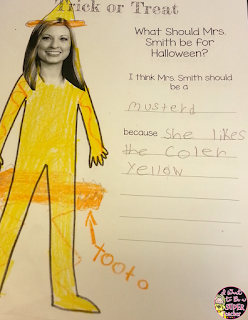 Trick or Treat
What Should Mrs.
Smith be for
Halloween?
I think Mrs. Smith should
be a
musterd
because She likes
the Coler
yellow
tooto
I Want
to Be a
SUPER
Teacher